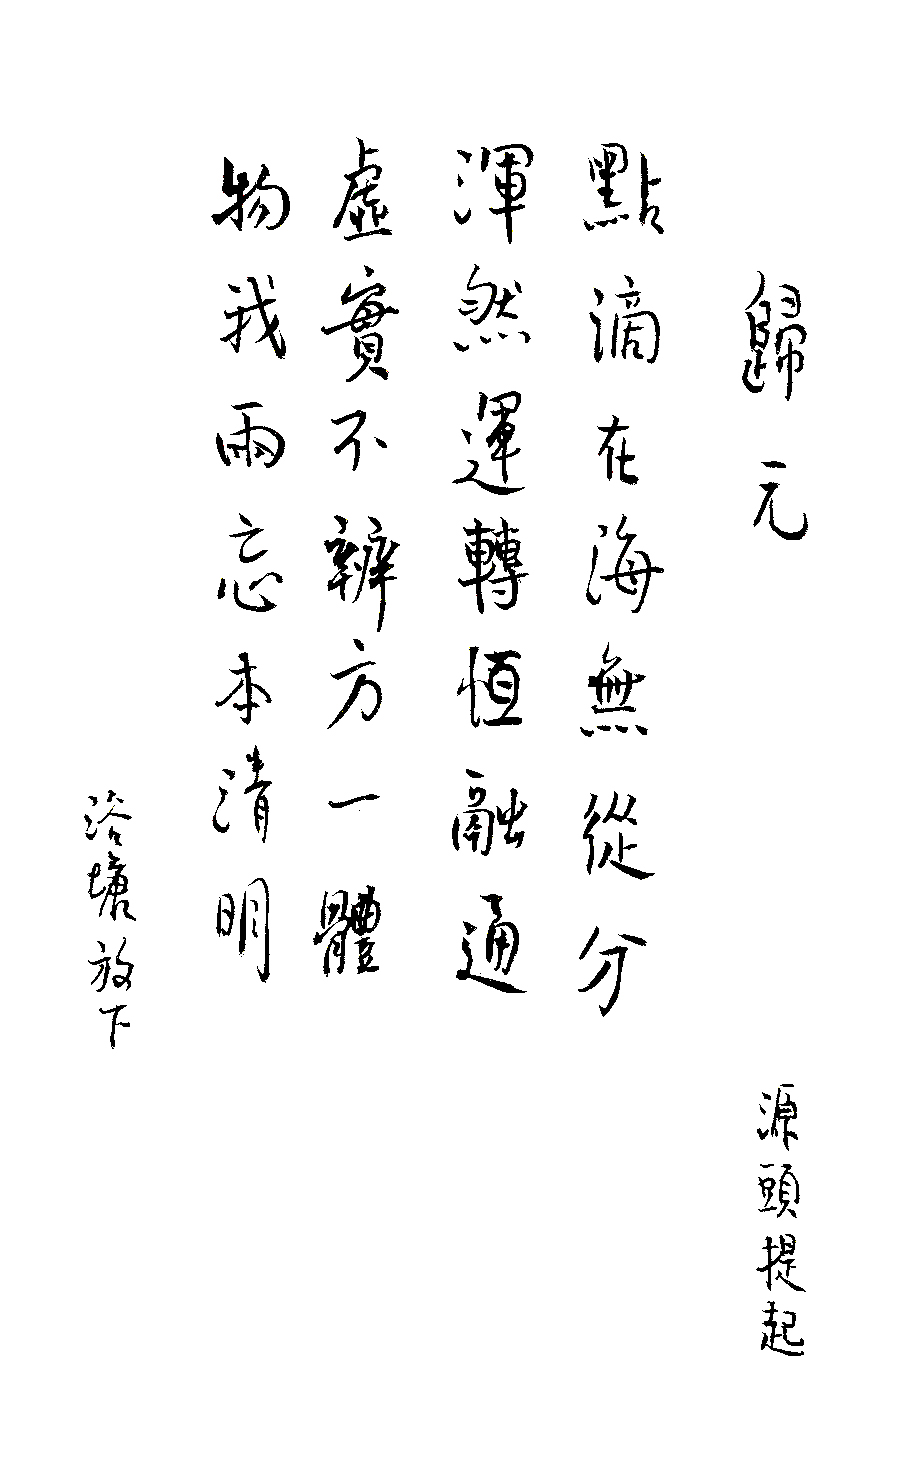 歸元
源頭提起
點滴在海無從分
渾然運轉恒融通
虛實不辨方一體
物我兩忘本清明
浴塘放下